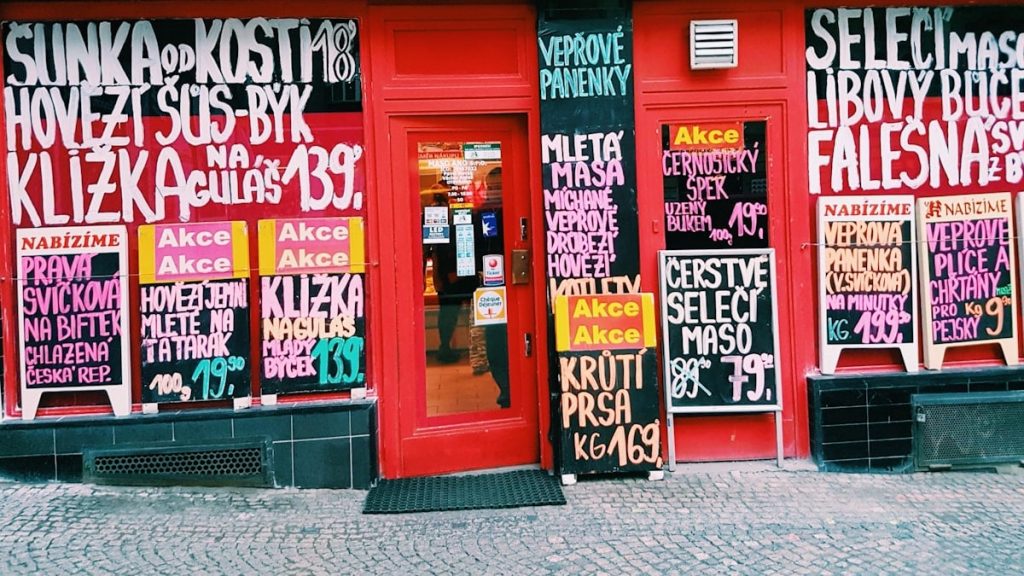 ŠUNKA OD KOSTI 18⁹
HOVĚZÍ ŠUS-BÝK
KLIŽKA NA GULÁŠ 139,-
NABÍZÍME
PRAVÁ
SVÍČKOVÁ
NA BIFTEK
CHLAZENÁ
ČESKÁ REP.
Akce
Akce
HOVĚZÍ JEMNĚ
MLETÉ NA
TATARAK
100g 19,50
Akce
Akce
KLIŽKA
NA GULÁŠ
MLADÝ
BÝČEK 139,-
MASO ANO s.r.o.
LED
Chèque
Déjeuner
VEPŘOVÉ
PANENKY
MLETÁ
MASA
MÍCHANÉ,
VEPŘOVÉ
DRŮBEŽÍ
HOVĚZÍ
KOTLETY
Akce
Akce
KRŮTÍ
PRSA
KG 169,-
Akce
ČERNOŠICKÝ
ŠPEK
UZENÝ
BUKEM
100g 19,90
ČERSTVÉ
SELEČÍ
MASO
89,- 79,-
SELEČÍ MASO
LIBOVÝ BŮČE
FALEŠNÁ SV
Z BÝ
NABÍZÍME
VEPŘOVÁ
PANENKA
(V. SVÍČKOVÁ)
NA MINUTKY
KG 199,50
NABÍZÍME
VEPŘOVÉ
PLÍCE A
CHŘTÁNY
PRO KG 9,90
PEJSKY